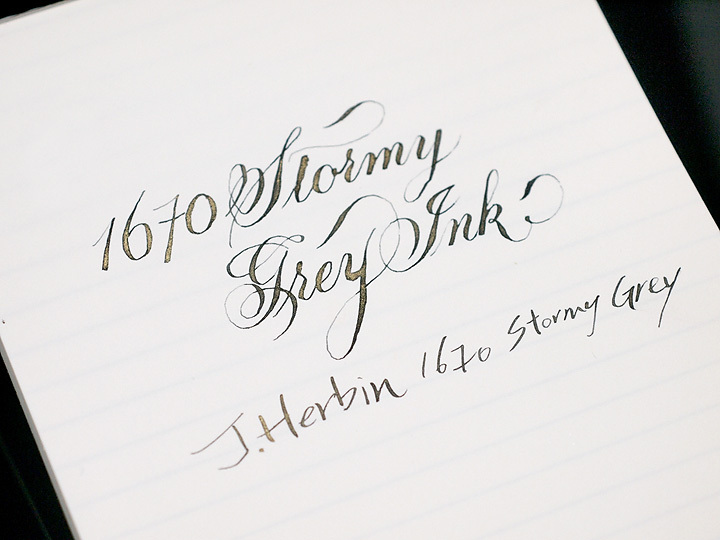 1670 Stormy
Grey Ink
J.Herbin 1670 Stormy Grey